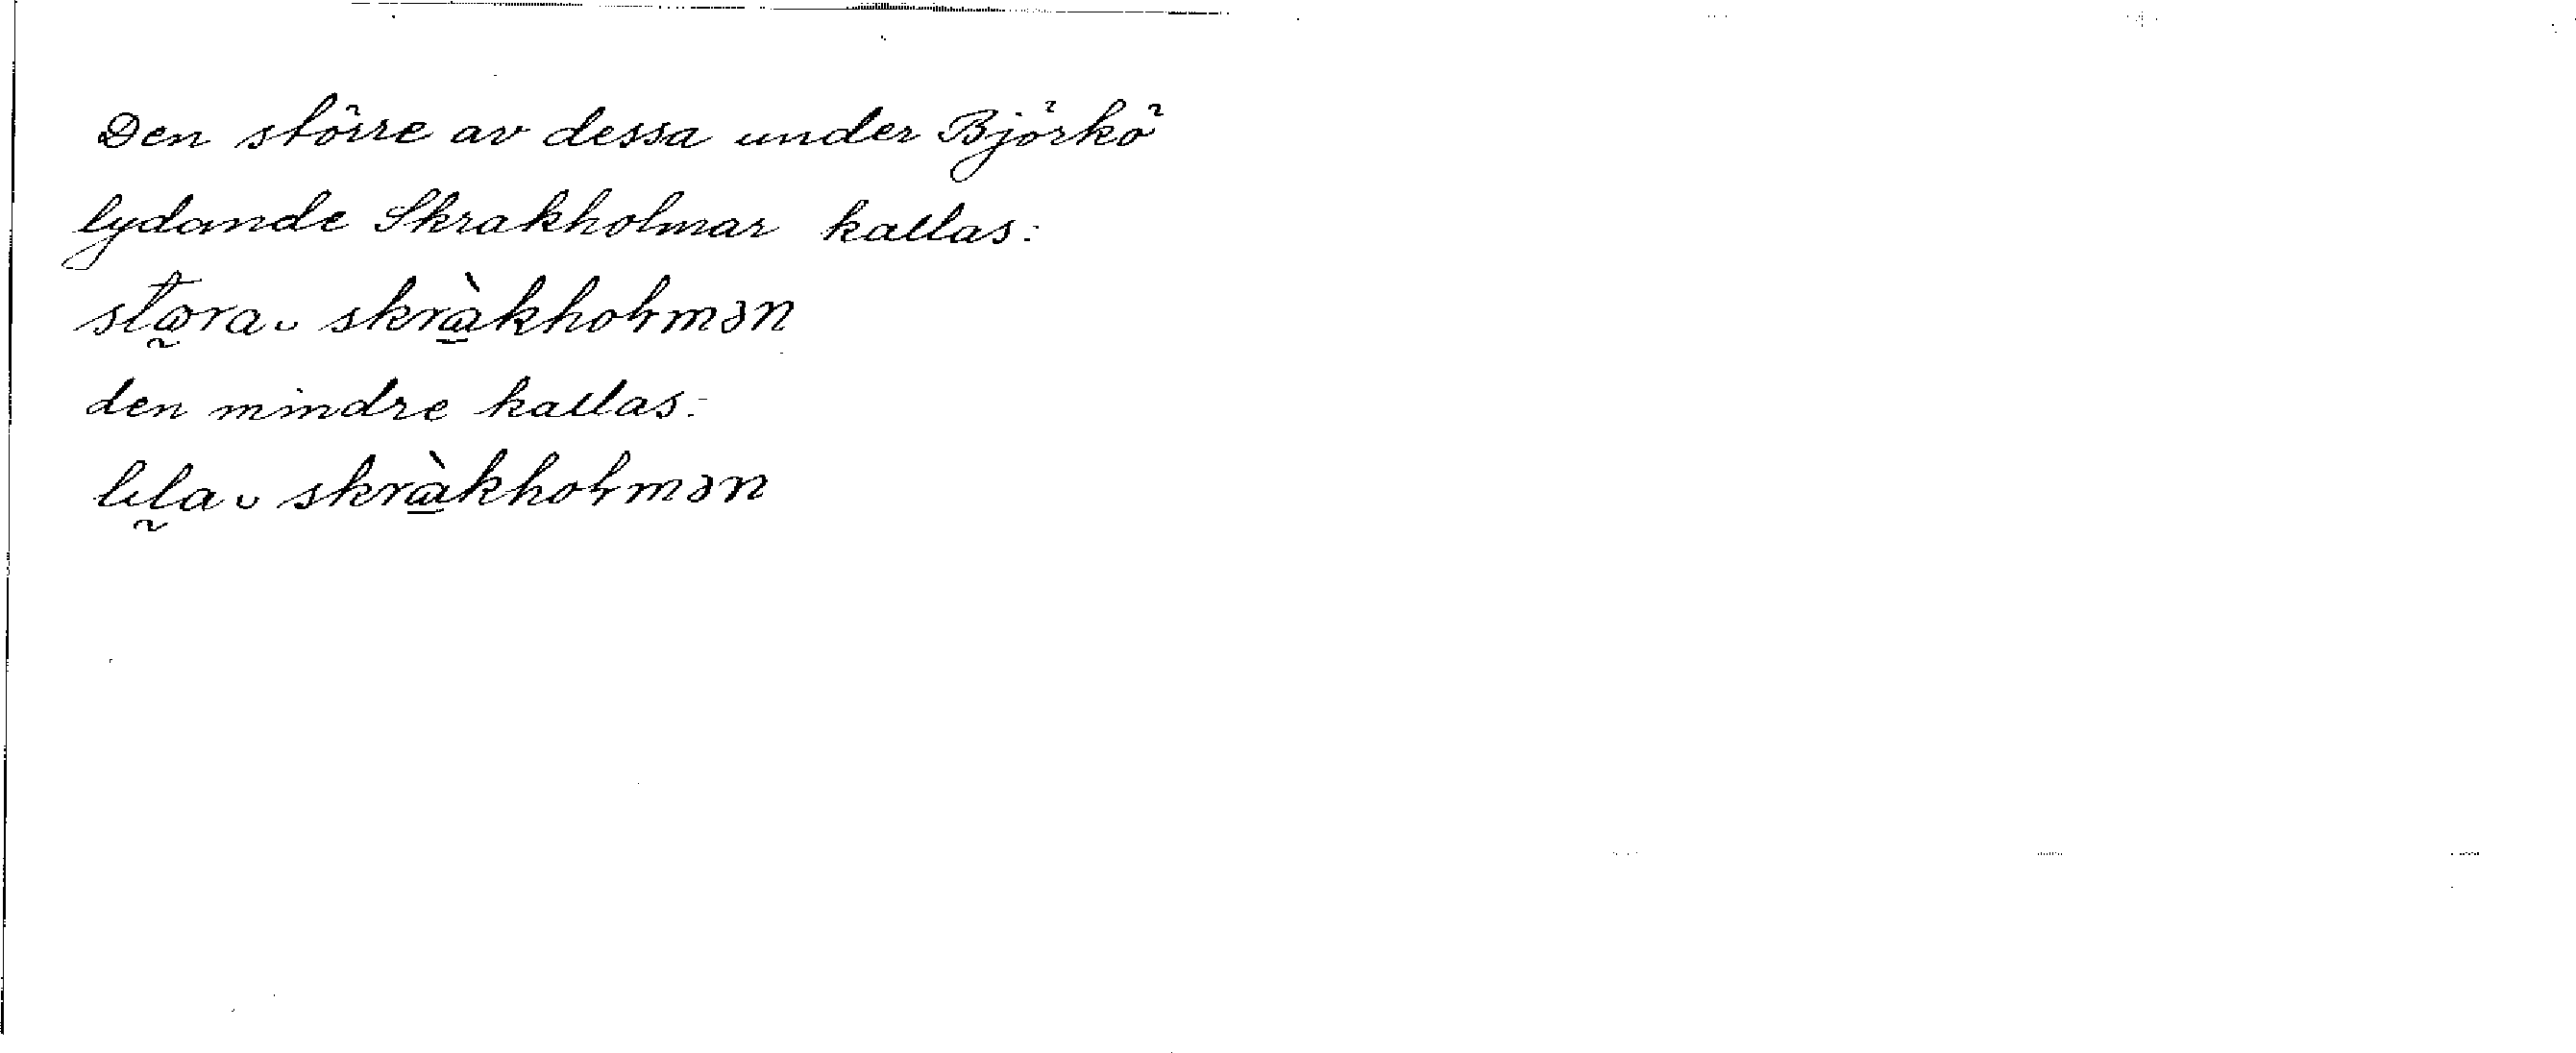 Den större av dessa under Björkö
lydande Skrakholmar kallas:
stꞷ̰ra ᴗ skrɑ̱̀khoɫmən
den mindre kallas:
lɩl̰a ᴗ skrɑ̱̀khoɫmən